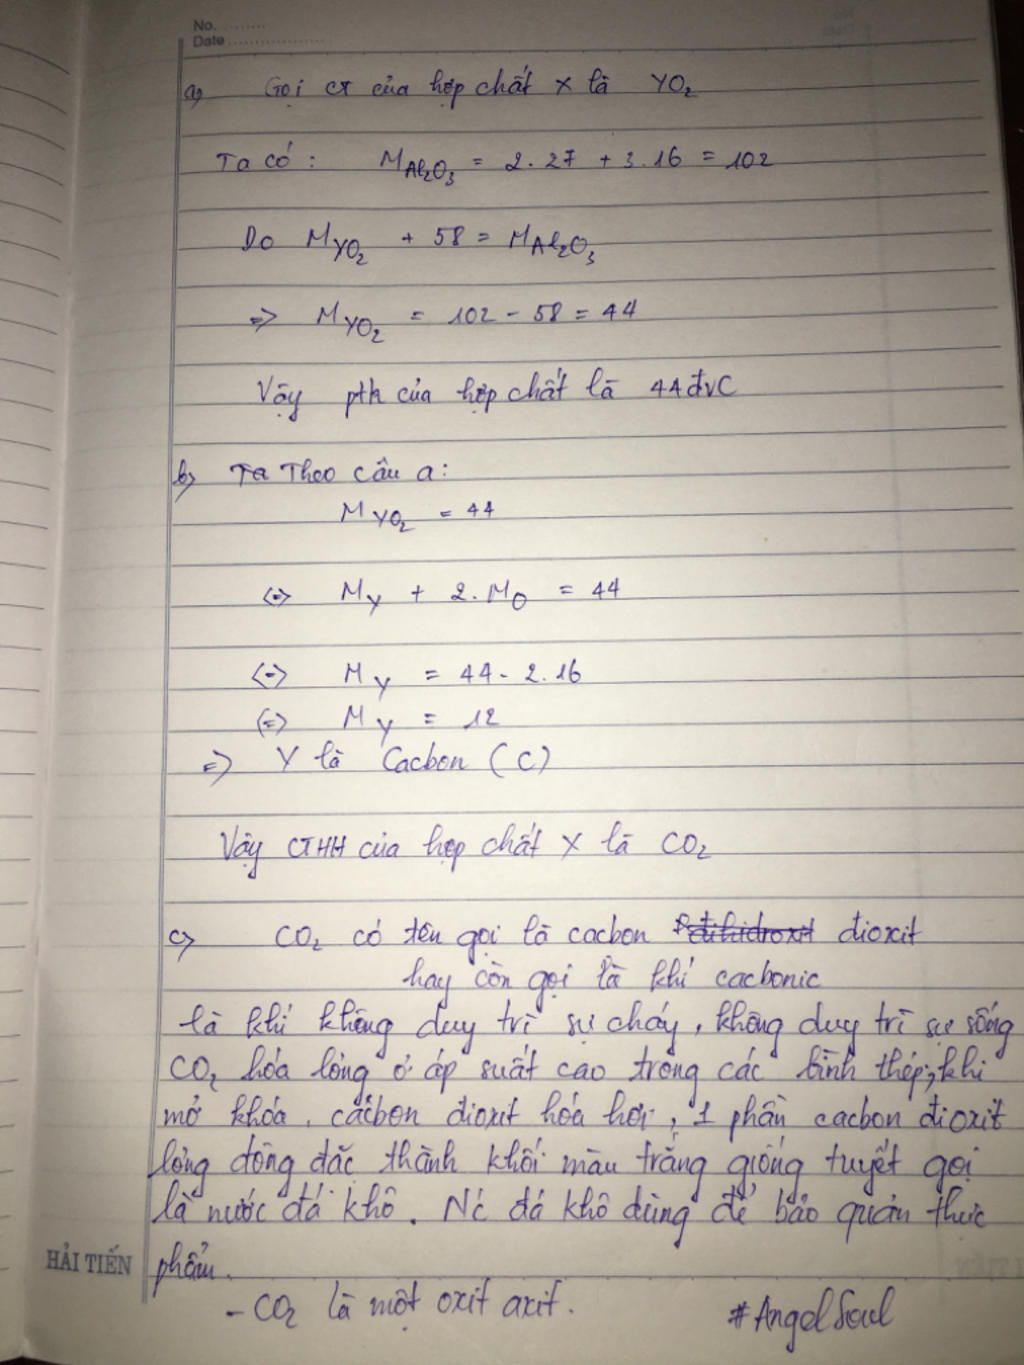 No. ..........
Date ....................
a, Gọi CT của hợp chất X là YO₂
Ta có: M_Al₂O₃ = 2.27 + 3.16 = 102
Do M_YO₂ + 58 = M_Al₂O₃
=> M_YO₂ = 102 - 58 = 44
Vậy ptk của hợp chất là 44đvC
b, Ta Theo câu a:
M_YO₂ = 44
<=> M_Y + 2.M_O = 44
<=> M_Y = 44 - 2.16
<=> M_Y = 12
=> Y là Cacbon (C)
Vậy CTHH của hợp chất X là CO₂
c, CO₂ có tên gọi là cacbon đihidroxit đioxit
hay còn gọi là khí cacbonic
là khí không duy trì sự cháy, không duy trì sự sống
CO₂ hóa lỏng ở áp suất cao trong các bình thép, khi
mở khóa, cacbon đioxit hóa hơi, 1 phần cacbon đioxit
lỏng đông đặc thành khối màu trắng giống tuyết gọi
là nước đá khô. Nc đá khô dùng để bảo quản thực
HẢI TIẾN phẩm.
- CO₂ là một oxit axit. #AngelSoul